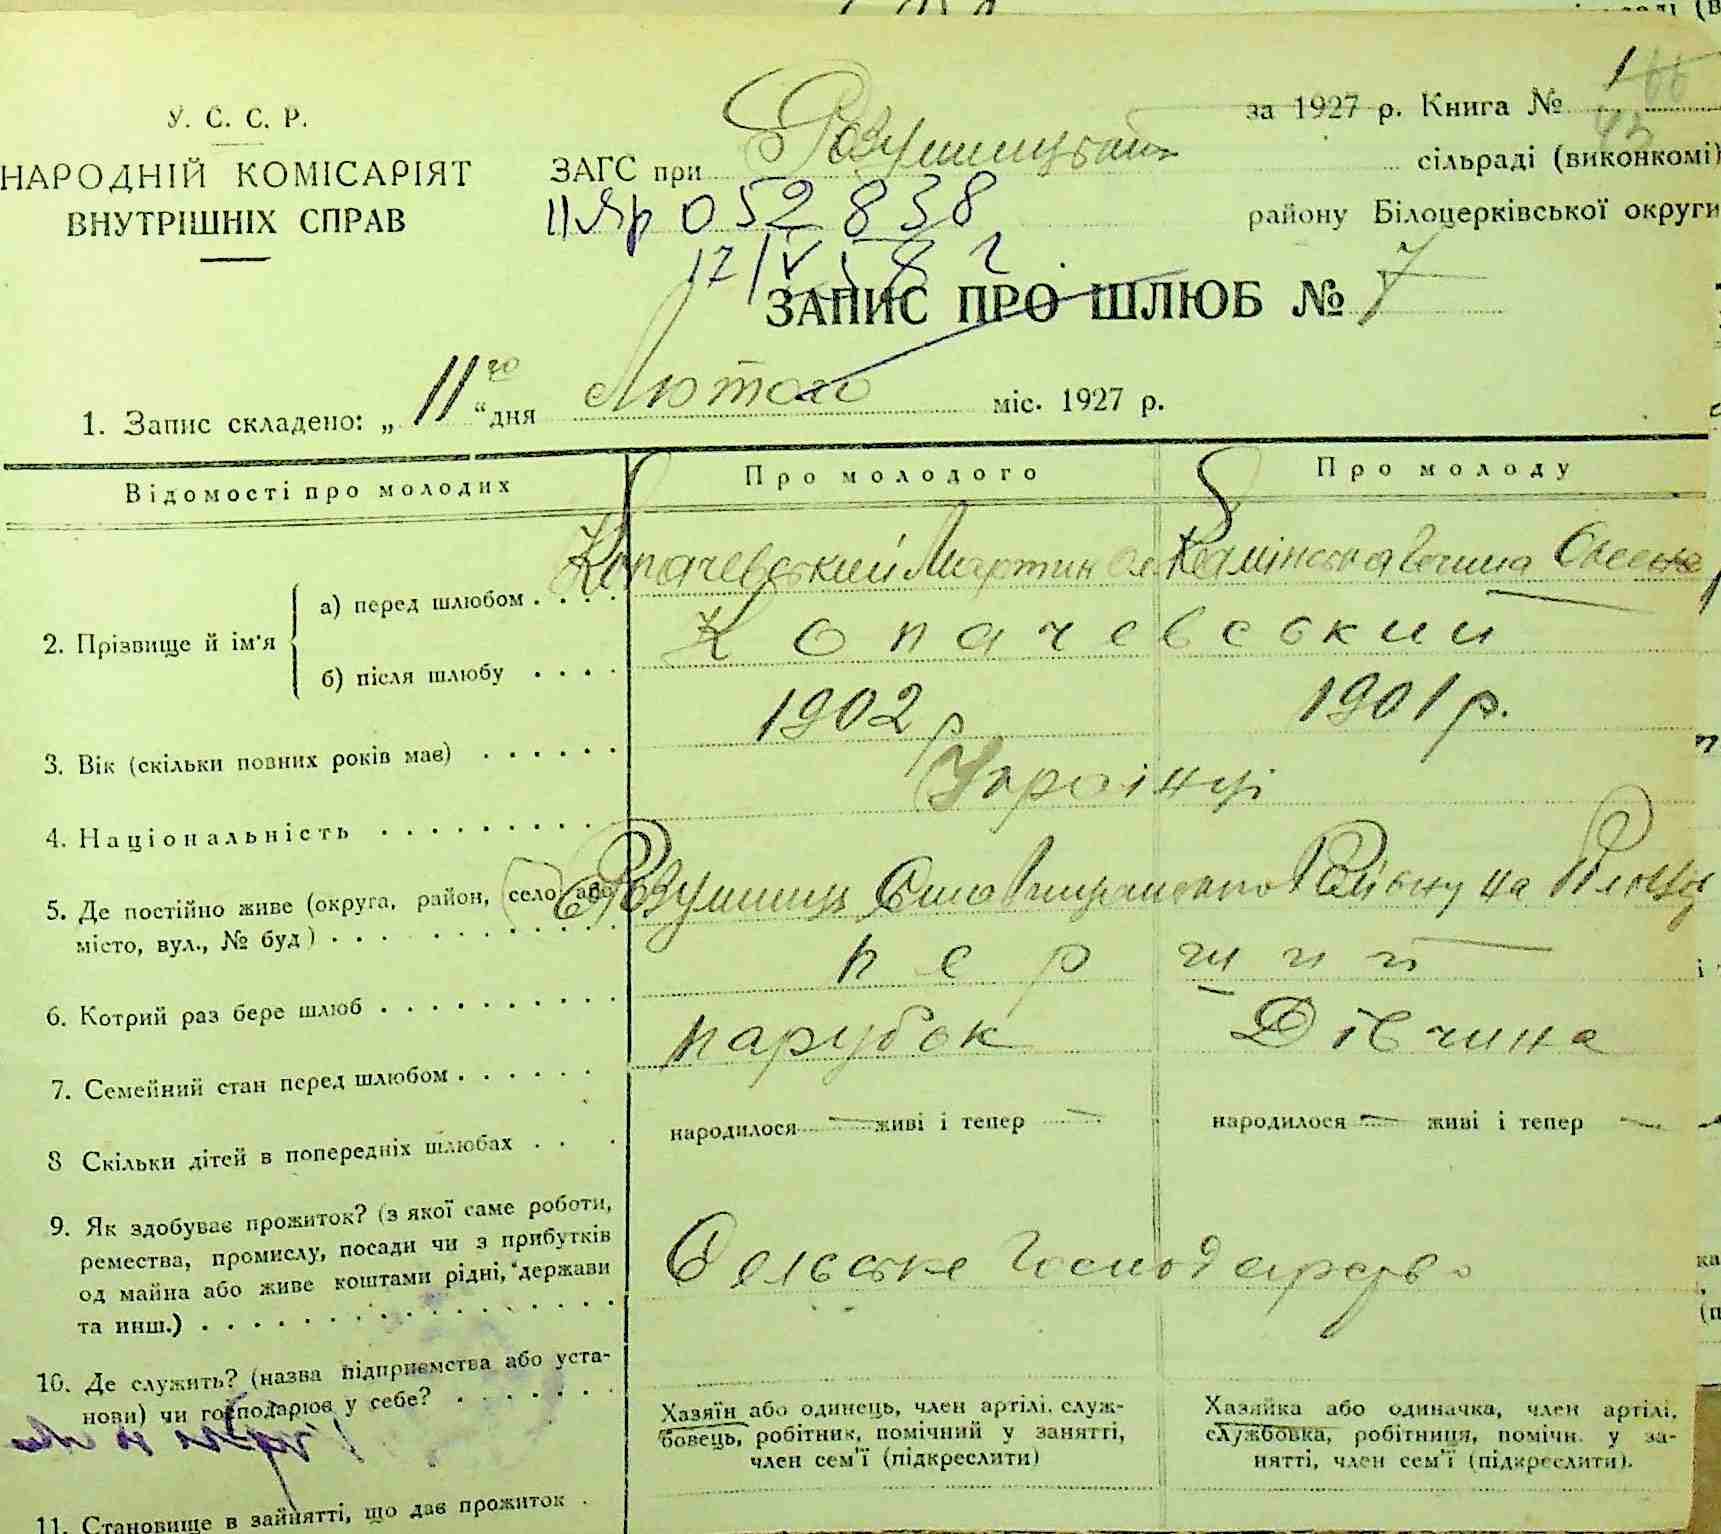 за 1927 р. Книга № 1
У. С. С. Р.
НАРОДНІЙ КОМІСАРІЯТ
ВНУТРІШНІХ СПРАВ
ЗАГС при сільраді (виконкомі)
052838
району Білоцерківської округи
ЗАПИС ПРО ШЛЮБ № 7
1. Запис складено: „ 11го “ дня Лютого міс. 1927 р.
Відомості про молодих Про молодого Про молоду
2. Прізвище й ім'я
а) перед шлюбом . . . . Копачевський Мартин Камінська
б) після шлюбу . . . . Копачевський
3. Вік (скільки повних років має) . . . . . . 1902 р 1901 р.
4. Національність . . . . . . . . . Українці
5. Де постійно живе (округа, район, село або
місто, вул., № буд) . . . . . . . . . . .
6. Котрий раз бере шлюб . . . . . . . . . . перший
7. Семейний стан перед шлюбом . . . . . . парубок Дівчина
8 Скільки дітей в попередніх шлюбах . . . народилося — живі і тепер — народилося — живі і тепер —
9. Як здобуває прожиток? (з якої саме роботи,
ремества, промислу, посади чи з прибутків
од майна або живе коштами рідні, держави
та инш.) . . . . . . . . . . . . . . . Сельське Господарство
10. Де служить? (назва підприємства або уста-
нови) чи господарює у себе? . . . . . . .
Хазяїн або одинець, член артілі, служ-
бовець, робітник, помічний у занятті,
член сем'ї (підкреслити)
Хазяйка або одиначка, член артілі,
службовка, робітниця, помічн. у за-
нятті, член сем'ї (підкреслити).
11. Становище в зайнятті, що дає прожиток .